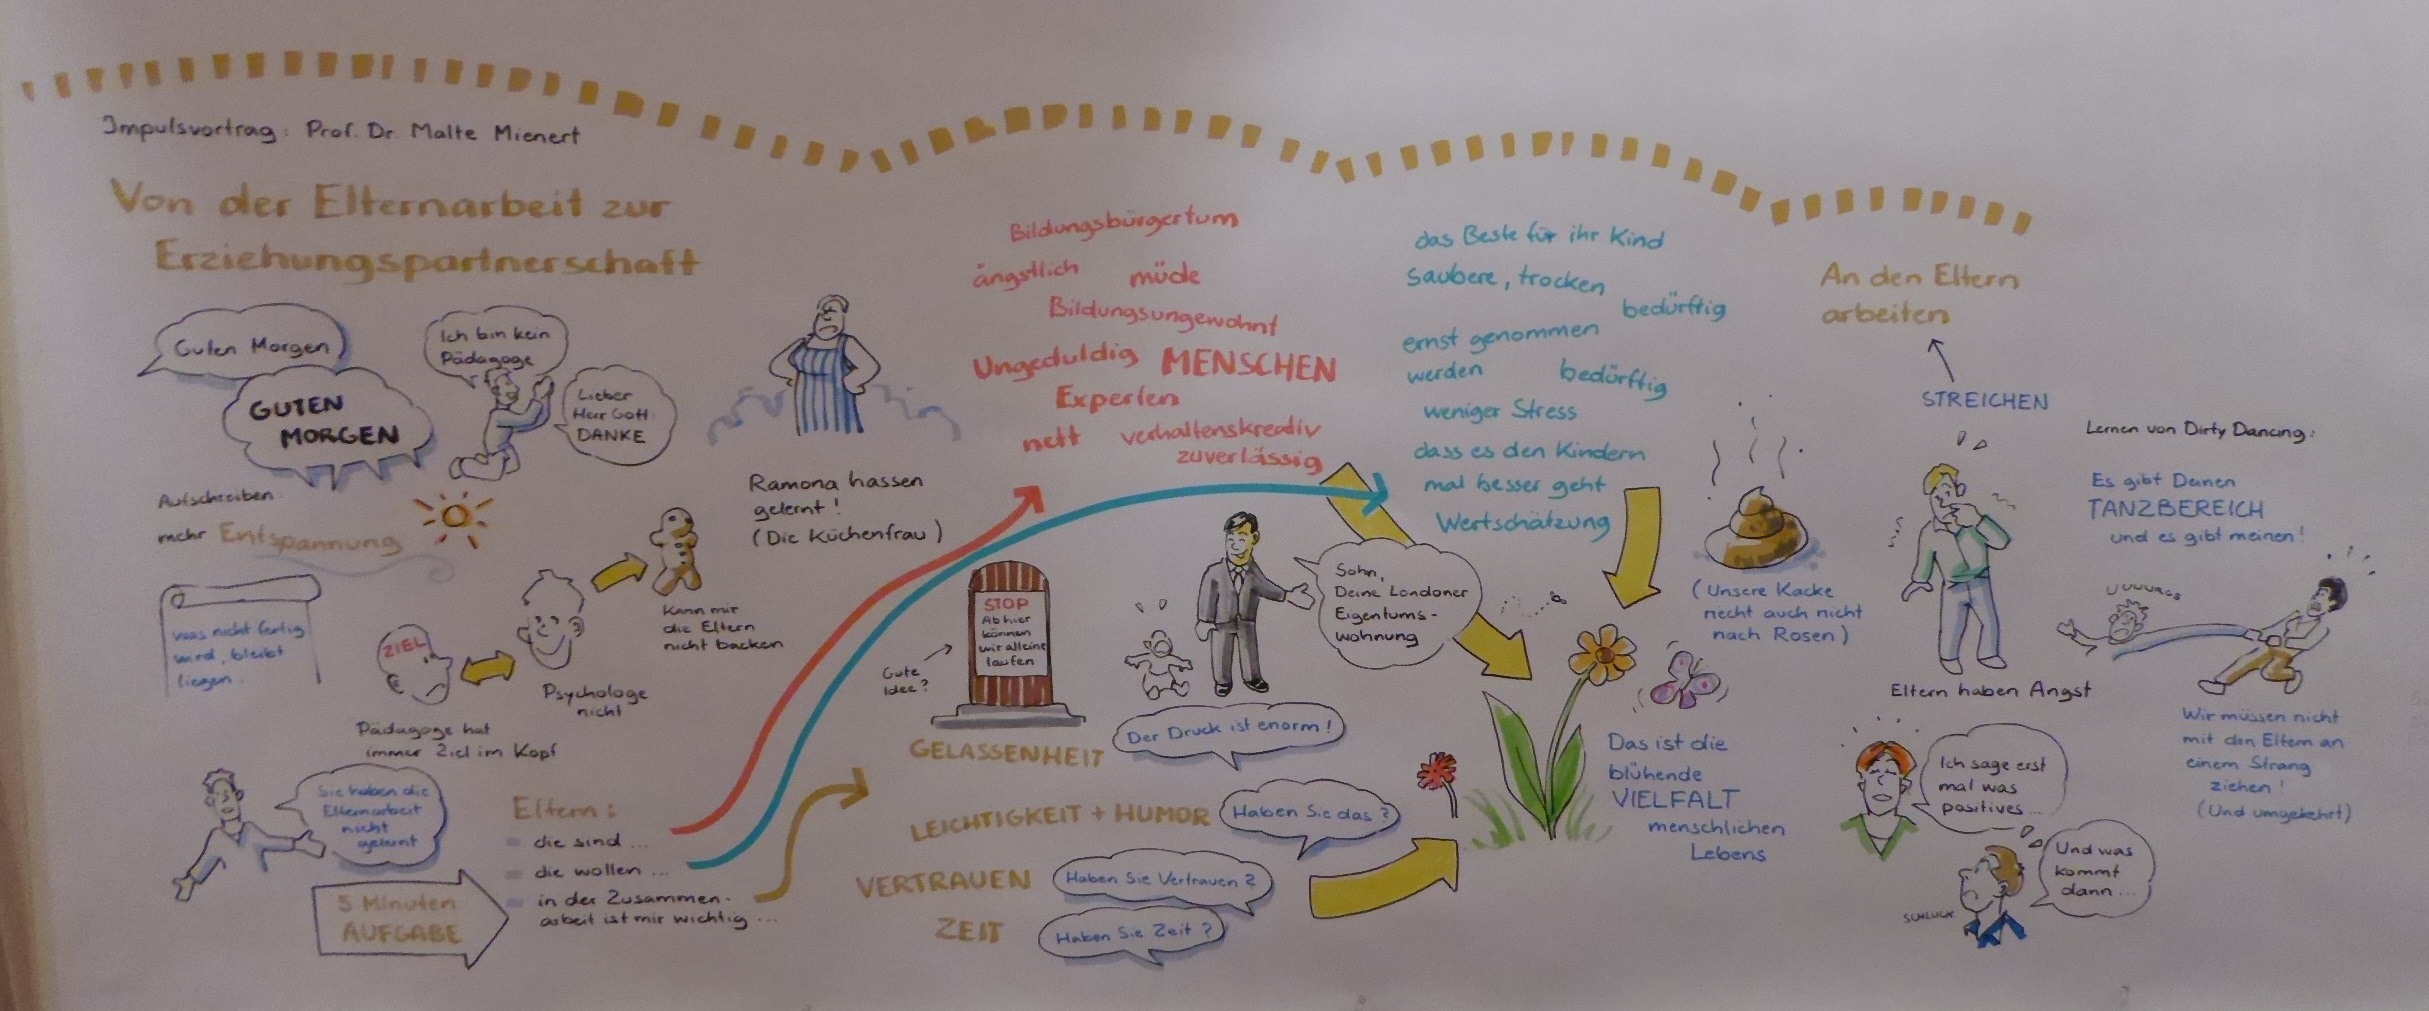 Impulsvortrag: Prof. Dr. Malte Mienert
Von der Elternarbeit zur
Erziehungspartnerschaft
Guten Morgen
GUTEN
MORGEN
Ich bin kein
Pädagoge
Lieber
Herr Gott
DANKE
Aufschreiben:
mehr Entspannung
was nicht fertig
wird, bleibt
liegen.
ZIEL
Pädagoge hat
immer Ziel im Kopf
Psychologe
nicht
Kann mir
die Eltern
nicht backen
Ramona hassen
gelernt!
(Die Küchenfrau)
Sie haben die
Elternarbeit
nicht
gelernt
5 Minuten
AUFGABE
Eltern:
die sind ...
die wollen ...
in der Zusammen-
arbeit ist mir wichtig ...
Bildungsbürgertum
ängstlich müde
Bildungsungewohnt
Ungeduldig MENSCHEN
Experten
nett verhaltenskreativ
zuverlässig
Gute
Idee?
STOP
Ab hier
können
wir alleine
laufen
Sohn,
Deine Londoner
Eigentums-
wohnung
Der Druck ist enorm!
GELASSENHEIT
LEICHTIGKEIT + HUMOR
Haben Sie das?
VERTRAUEN
Haben Sie Vertrauen?
ZEIT
Haben Sie Zeit?
das Beste für ihr Kind
saubere, trocken
bedürftig
ernst genommen
werden bedürftig
weniger Stress
dass es den Kindern
mal besser geht
Wertschätzung
(Unsere Kacke
riecht auch nicht
nach Rosen)
Das ist die
blühende
VIELFALT
menschlichen
Lebens
An den Eltern
arbeiten
STREICHEN
Eltern haben Angst
Ich sage erst
mal was
positives...
Und was
kommt
dann...
SCHLUCK
Lernen von Dirty Dancing:
Es gibt Deinen
TANZBEREICH
und es gibt meinen!
Wir müssen nicht
mit den Eltern an
einem Strang
ziehen!
(Und umgekehrt)